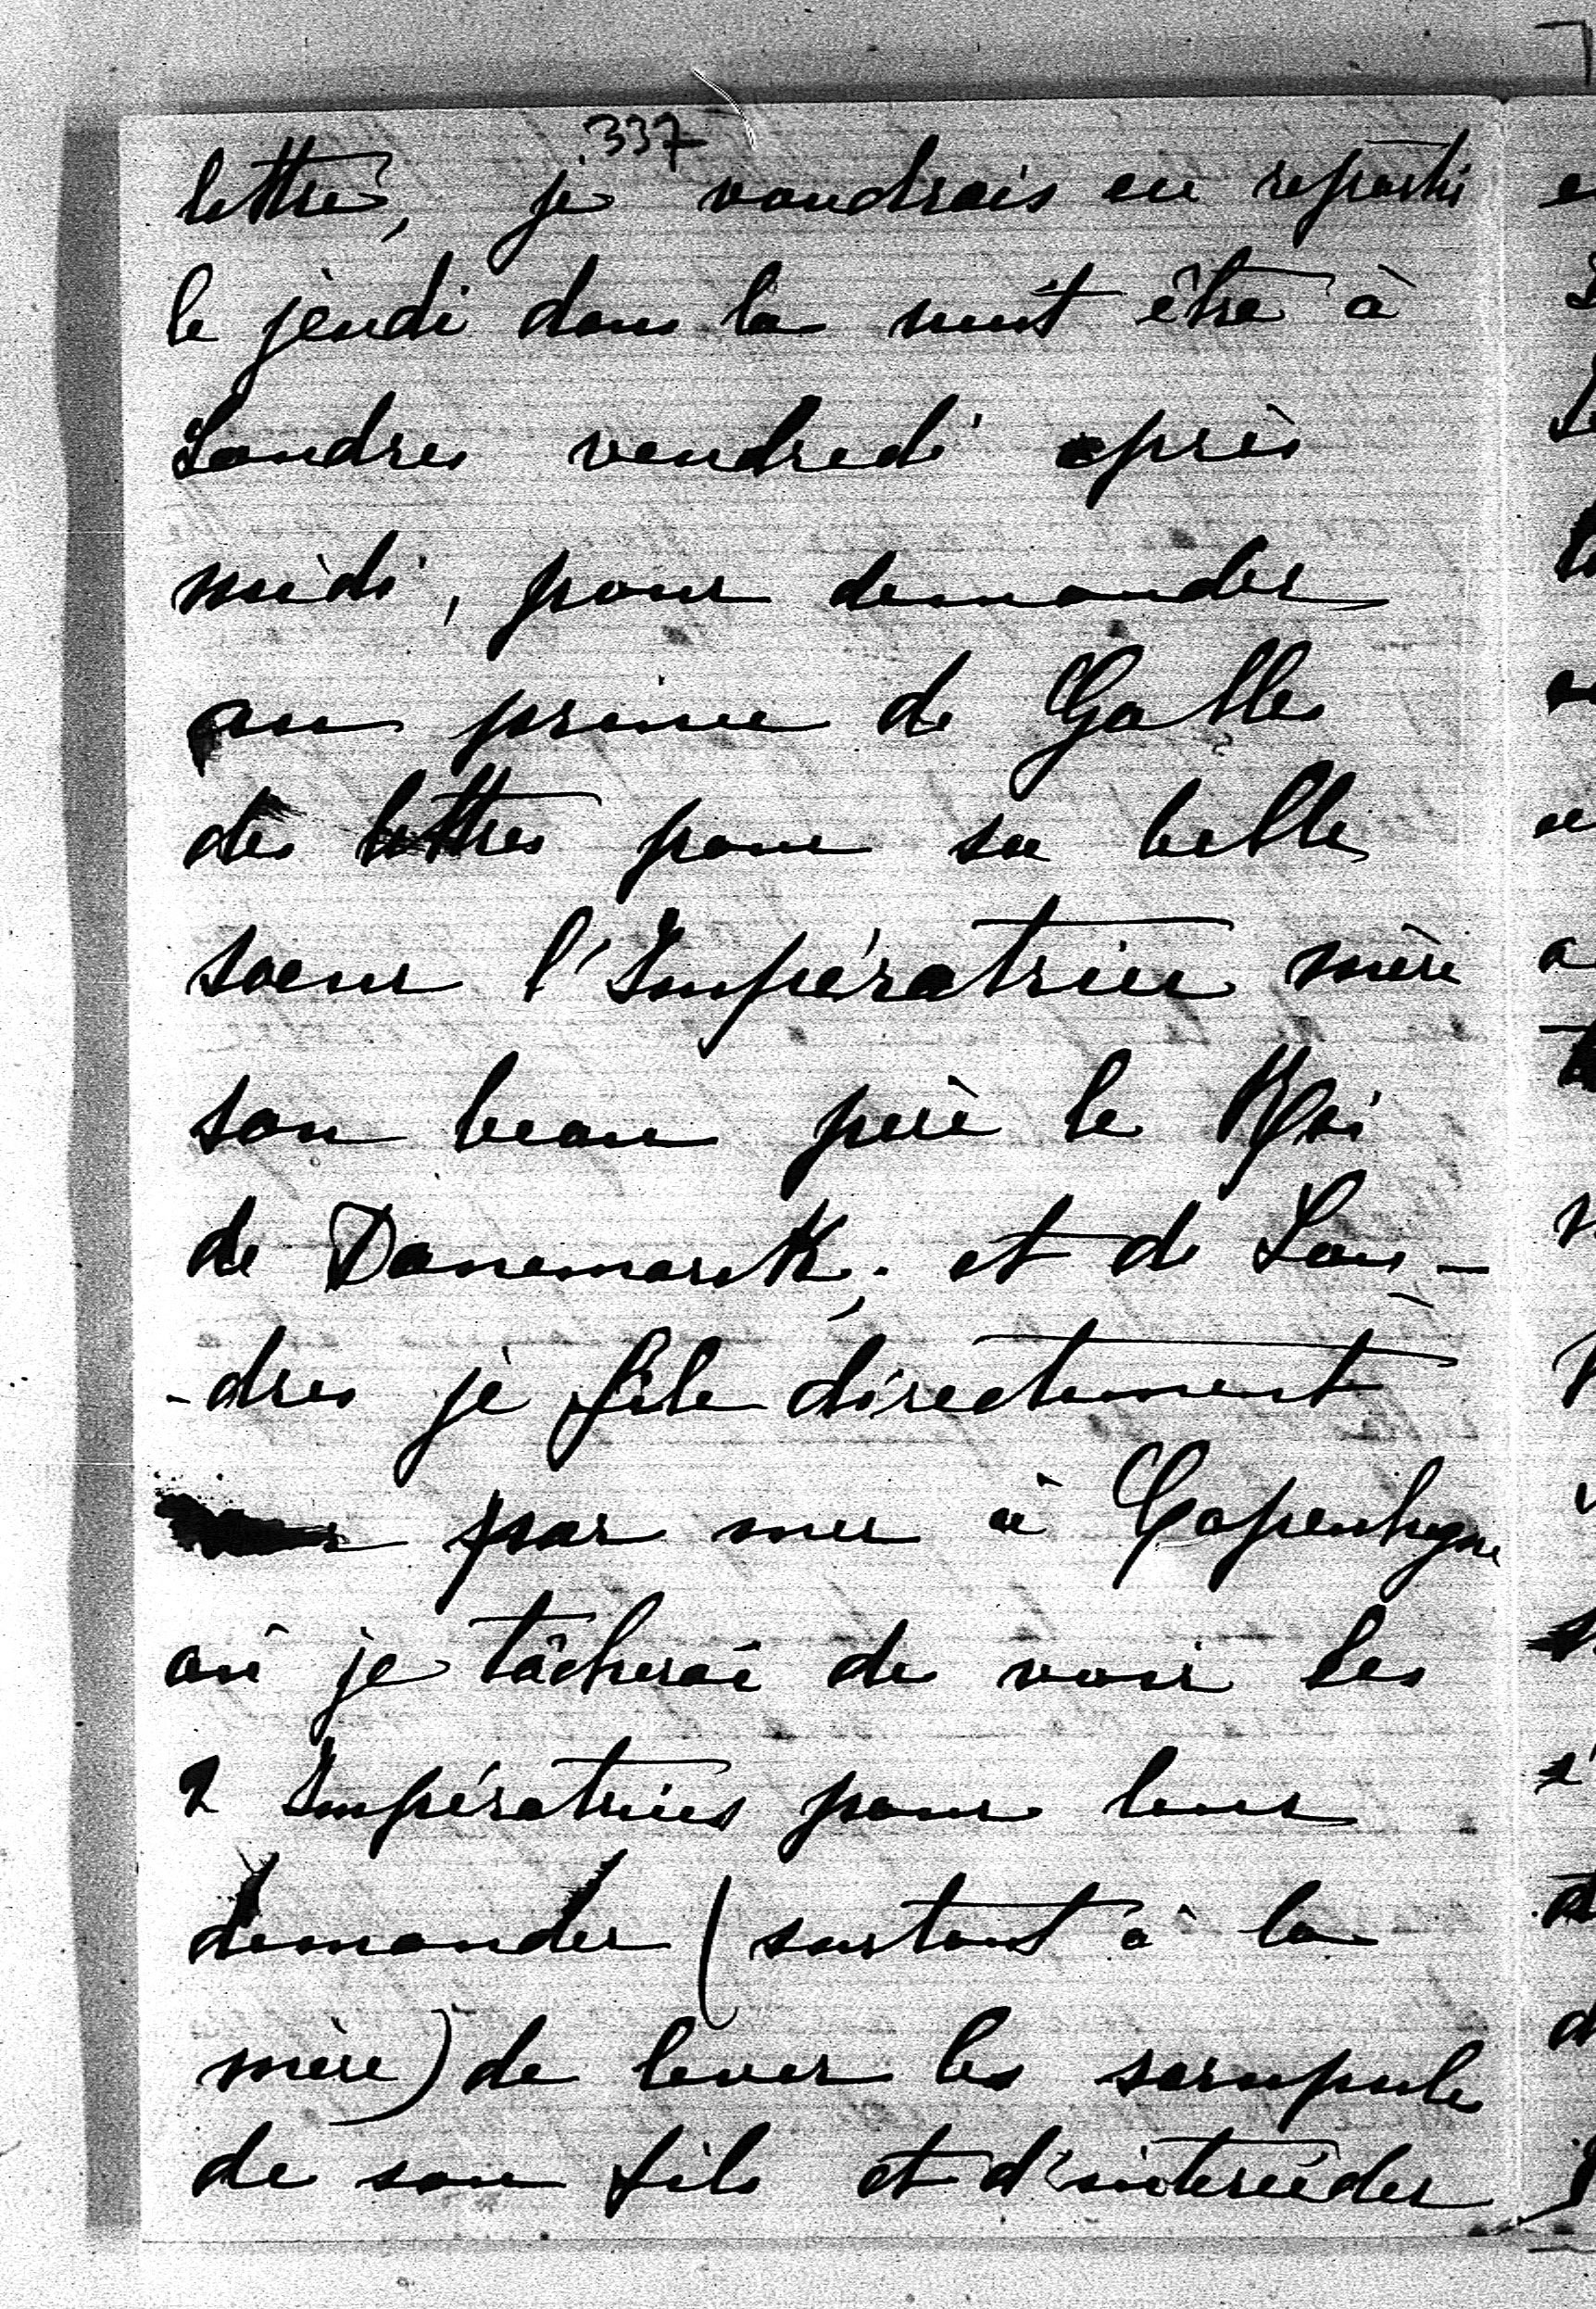 337
lettre, je voudrais en repartir
le jeudi dans la nuit être à
Londres vendredi après
midi, pour demander
au prince de Galles
des lettres pour sa belle
soeur l'Impératrice mère
son beau père le Roi
de Danemark, et de Lon-
-dres je file directement
par mer à Copenhague
où je tâcherai de voir les
2 Impératrices pour leur
demander (surtout à la
mère) de lever les scrupules
de son fils et d'intercéder